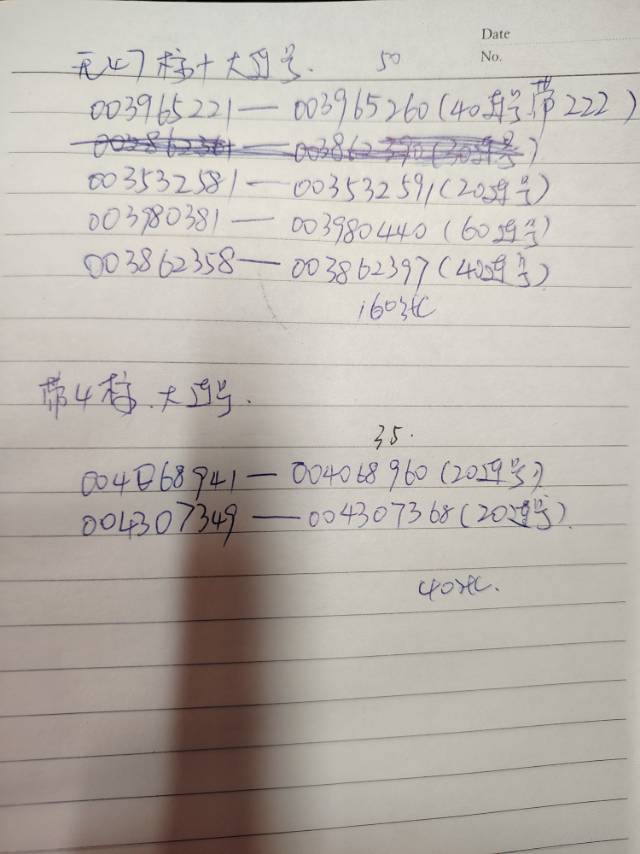 Date
No.
无47标十大连号. 50
003965221—003965260(40连号带222)
003532581—003532591(20连号)
003980381—003980440(60连号)
003862358—003862397(40连号)
160张
带4标.大连号.
35.
004068941—004068960(20连号)
004307349—004307368(20连号)
40张.